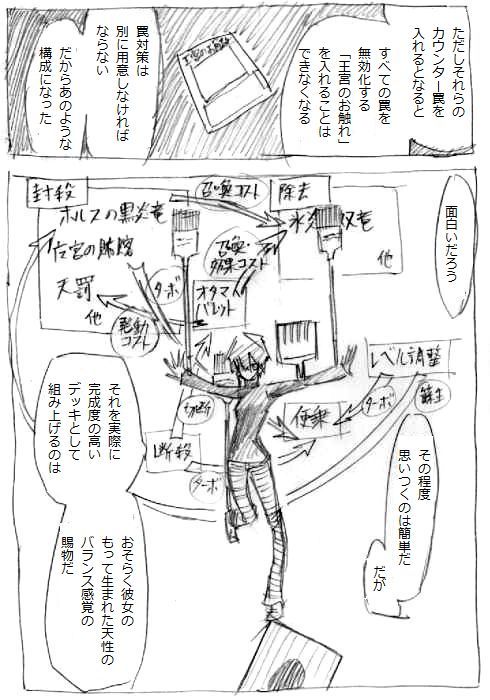 ただしそれらの
カウンター罠を
入れるとなると
すべての罠を
無効化する
「王宮のお触れ」
を入れることは
できなくなる
王宮のお触れ
罠対策は
別に用意しなければ
ならない
だからあのような
構成になった
面白いだろう
封殺
ホルスの黒炎竜
王宮の賄賂
天罰
他
召喚コスト
除去
氷炎
双竜
他
召喚・
効果コスト
ターボ
オタマ
バレット
発動
コスト
レベル調整
蘇生
ターボ
使来
切断
断殺
ターボ
その程度
思いつくのは簡単だ
だが
それを実際に
完成度の高い
デッキとして
組み上げるのは
おそらく彼女の
もって生まれた天性の
バランス感覚の
賜物だ